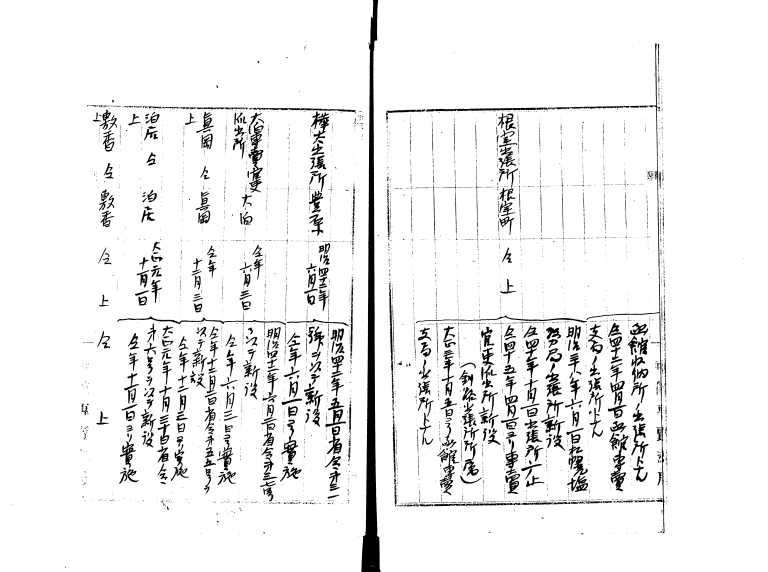 函館収納所ノ出張所トナル
仝四十三年四月一日函館専賣
支局ノ出張所トナル
根室出張所 根室町 仝上
明治三十八年六月一日札幌塩
務局ノ出張所新設
仝四十年十月一日出張所廃止
仝四十五年四月一日ヨリ専賣
官吏派出所新設
(釧路出張所所属)
大正三年六月五日ヨリ函館専賣
支局ノ出張所トナル
樺太出張所 豊原 明治四十二年六月一日
明治四十二年五月 日省令第三一
號ヲ以テ新設
仝年六月一日ヨリ實施
大泊専賣官吏派出所 大泊 仝年六月三日
明治四十二年六月 日省令第三七号
ヲ以テ新設
仝年六月三日ヨリ實施
真岡 仝上 真岡 仝年十二月三日
仝年十二月 日省令第五五号ヲ
以テ新設
仝年十二月三日ヨリ實施
泊居 仝上 泊居 大正元年十一月一日
大正元年十月三十日省令
第六号ヲ以テ新設
仝年十一月一日ヨリ實施
敷香 仝上 敷香 仝上 仝上